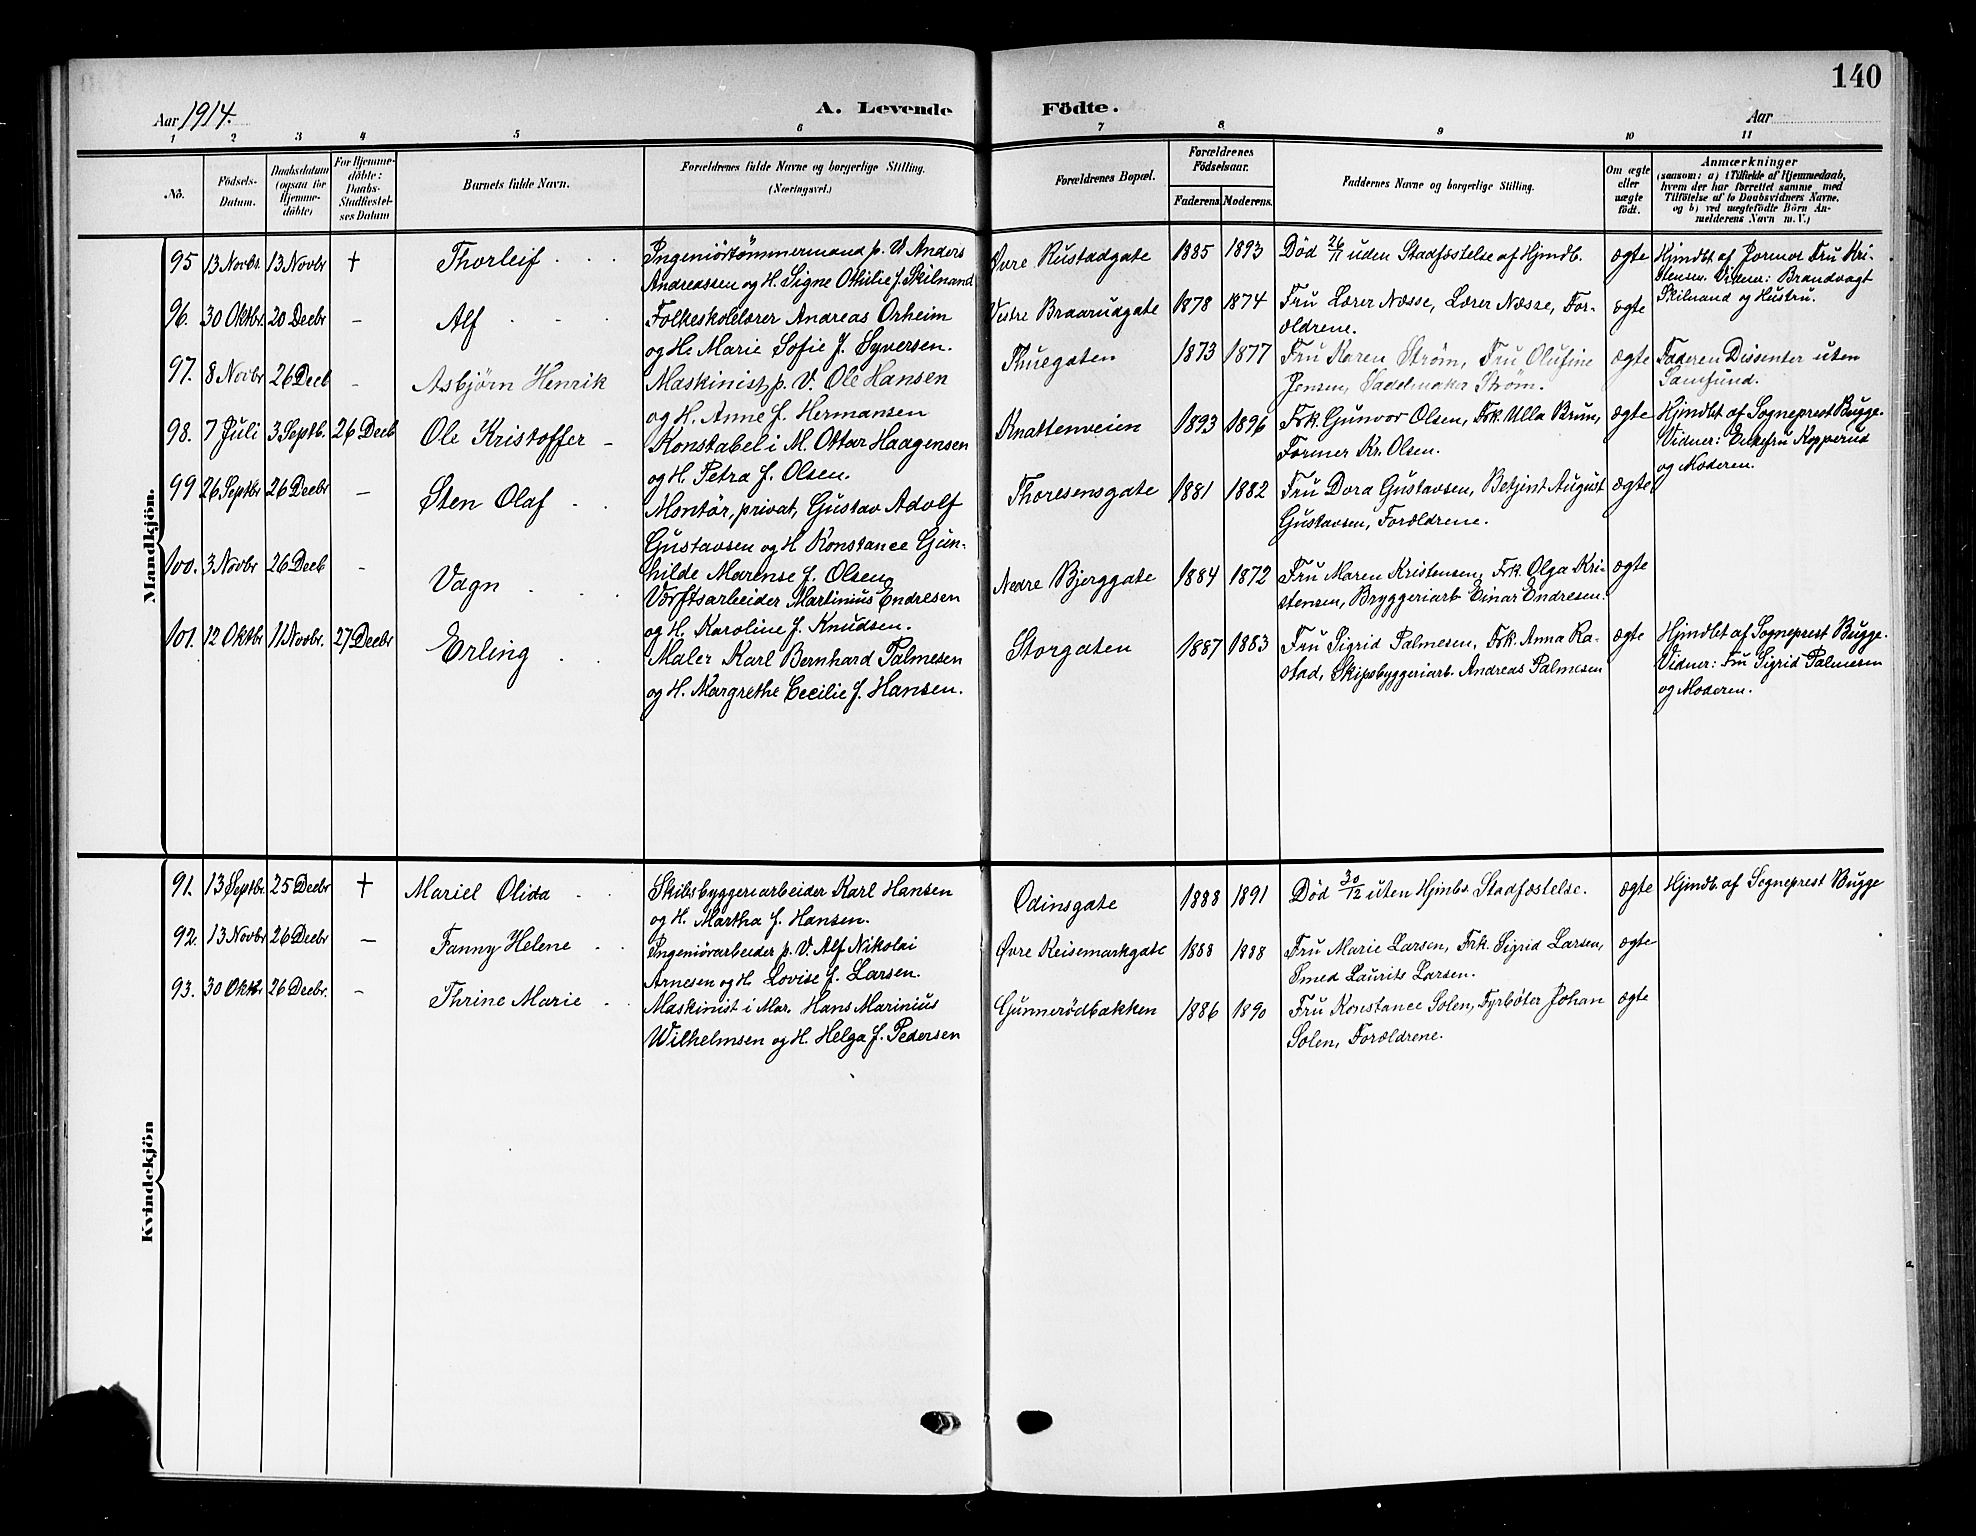 140
Aar 1914.
A. Levende Födte.
Aar
1 2 3 4 5 6 7 8 9 10 11
No.
Födsels-Datum.
Daabsdatum (ogsaa for Hjemme-döbte)
For Hjemme-döbte: Daabs-Stadfæstel-ses Datum
Barnets fulde Navn.
Forældrenes fulde Navne og borgerlige Stilling.
(Næringsvei.)
Forældrenes Bopæl.
Forældrenes Födselsaar.
Faderens. Moderens.
Faddernes Navne og borgerlige Stilling.
Om ægte eller uægte födt.
Anmærkninger
(saasom: a) i Tilfælde af Hjemmedaab,
hvem der har forrettet samme, med
Tilföielse af to Daabsvidners Navne,
og b) ved uægtefödte Börn An-
melderens Navn m. V.)
Mandkjön.
95 13 Novbr. 13 Novbr † Thorleif Ingeniörtömmermand p. V. Anders
Andreassen og H. Signe Othilie f. Skilnand
Övre Rustadgate 1885 1893 Död 26/11 uden Stadfæstelse af Hjmdb. ægte Hjmdbt af Jormor Fru Kri-
stensen. Vidner: Brandvagt
Skilnand og Hustru.
96. 30 Oktbr. 20 Decbr - Alf Folkeskolelærer Andreas Orheim
og H. Marie Sofie f. Syversen.
Vestre Braarudgate 1878 1874 Fru Lærer Næsse, Lærer Næsse, For-
ældrene. ægte
97. 8 Novbr 26 Decb - Asbjørn Henrik Maskinist, p. V. Ole Hansen
og H. Anne f. Hermansen
Thuegaten 1873 1877 Fru Karen Strøm, Fru Olufine
Jensen, Sadelmaker Strøm. ægte Faderen Dissenter uten
Samfund.
98. 7 Juli 3 Septb. 26 Decb Ole Kristoffer - Konstabel i M. Ottar Haagensen
og H. Petra f. Olsen.
Knattenveien 1893 1896 Frk. Gunvor Olsen, Frk. Ulla Brun,
Former Kr. Olsen. ægte Hjmdbt af Sogneprest Bugge.
Vidner: Enkefru Kopperud
og Moderen.
99 26 Septbr 26 Decbr - Sten Olaf Montör, privat, Gustav Adolf
Gustavsen og H. Konstance Gun-
hilde Marense f. Olsen
Thoresensgate 1881 1882 Fru Dora Gustavsen, Betjent August
Gustavsen, Forældrene. ægte
100. 3 Novbr 26 Decb - Vagn Værftsarbeider Martinius Endresen
og H. Karoline f. Knudsen.
Nedre Bjerggate 1884 1872 Fru Maren Kristensen, Frk. Olga Kri-
stensen, Bryggeriarb Einar Endresen. ægte
101. 12 Oktbr 11 Novbr. 27 Decbr Erling Maler Karl Bernhard Palmesen
og H. Margrethe Cecilie f. Hansen.
Storgaten 1887 1883 Fru Sigrid Palmesen, Frk. Anna Ra-
stad, Skipsbyggeriarb. Andreas Palmesen ægte Hjmdbt af Sogneprest Bugge.
Vidner: Fru Sigrid Palmesen
og Moderen.
Kvindekjön
91. 13 Septbr. 25 Decbr † Mariel Olida Skibsbyggeriarbeider Karl Hansen
og H. Martha f. Hansen.
Odinsgate 1888 1891 Död 30/12 uten Hjmbs. Stadfæstelse. ægte Hjmdb. af Sogneprest Bugge
92. 13 Novbr 26 Decbr - Fanny Helene Ingeniörarbeider p. V. Alf Nikolai
Arnesen og H. Lovise f. Larsen.
Övre Keisemarkgate 1888 1888 Fru Marie Larsen, Frk. Sigrid Larsen,
Smed Laurits Larsen. ægte
93. 30 Oktbr 26 Decbr. - Thrine Marie Maskinist i Mar. Hans Marinius
Wilhelmsen og H. Helga f. Pedersen
Gunnerödbakken 1886 1890 Fru Konstance Solen, Fyrbøter Johan
Solen, Forældrene. ægte